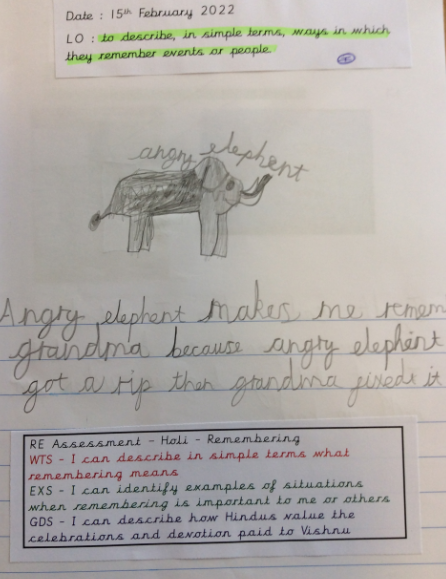 Date : 15th February 2022
LO : to describe, in simple terms, ways in which
they remember events or people
angry elephent
Angry elephent makes me remem
grandma because angry elephent
got a rip then grandma fixeds it
RE Assessment - Holi - Remembering
WTS - I can describe in simple terms what
remembering means
EXS - I can identify examples of situations
when remembering is important to me or others
GDS - I can describe how Hindus value the
celebrations and devotion paid to Vishnu